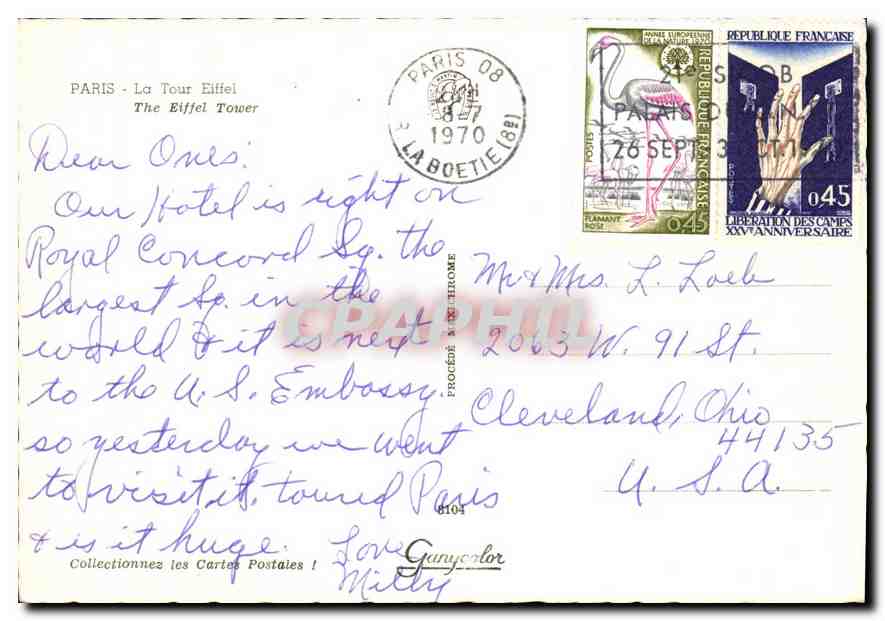 PARIS - La Tour Eiffel
The Eiffel Tower
Dear Ones:
Our Hotel is right on
Royal Concord Sq. the
largest Sq. in the
world & it is next
to the U. S. Embassy.
so yesterday we went
to visit it, toured Paris
& is it huge. Love
Milly
Collectionnez les Cartes Postales !
PROCÉDÉ MEXICHROME
8104
Ganycolor
PARIS 08
8-7
1970
R. LA BOETIE (8e)
ANNÉE EUROPÉENNE
DE LA NATURE 1970
RÉPUBLIQUE FRANÇAISE
POSTES
FLAMANT
ROSE
0,45
RÉPUBLIQUE FRANÇAISE
POSTES
0,45
LIBÉRATION DES CAMPS
XXVe ANNIVERSAIRE
21e S OB
PALAIS D N
26 SEPT 3 CT.1
Mr & Mrs. L. Loeb
2063 W. 91 St.
Cleveland, Ohio
44135
U. S. A.
CPAPHIL